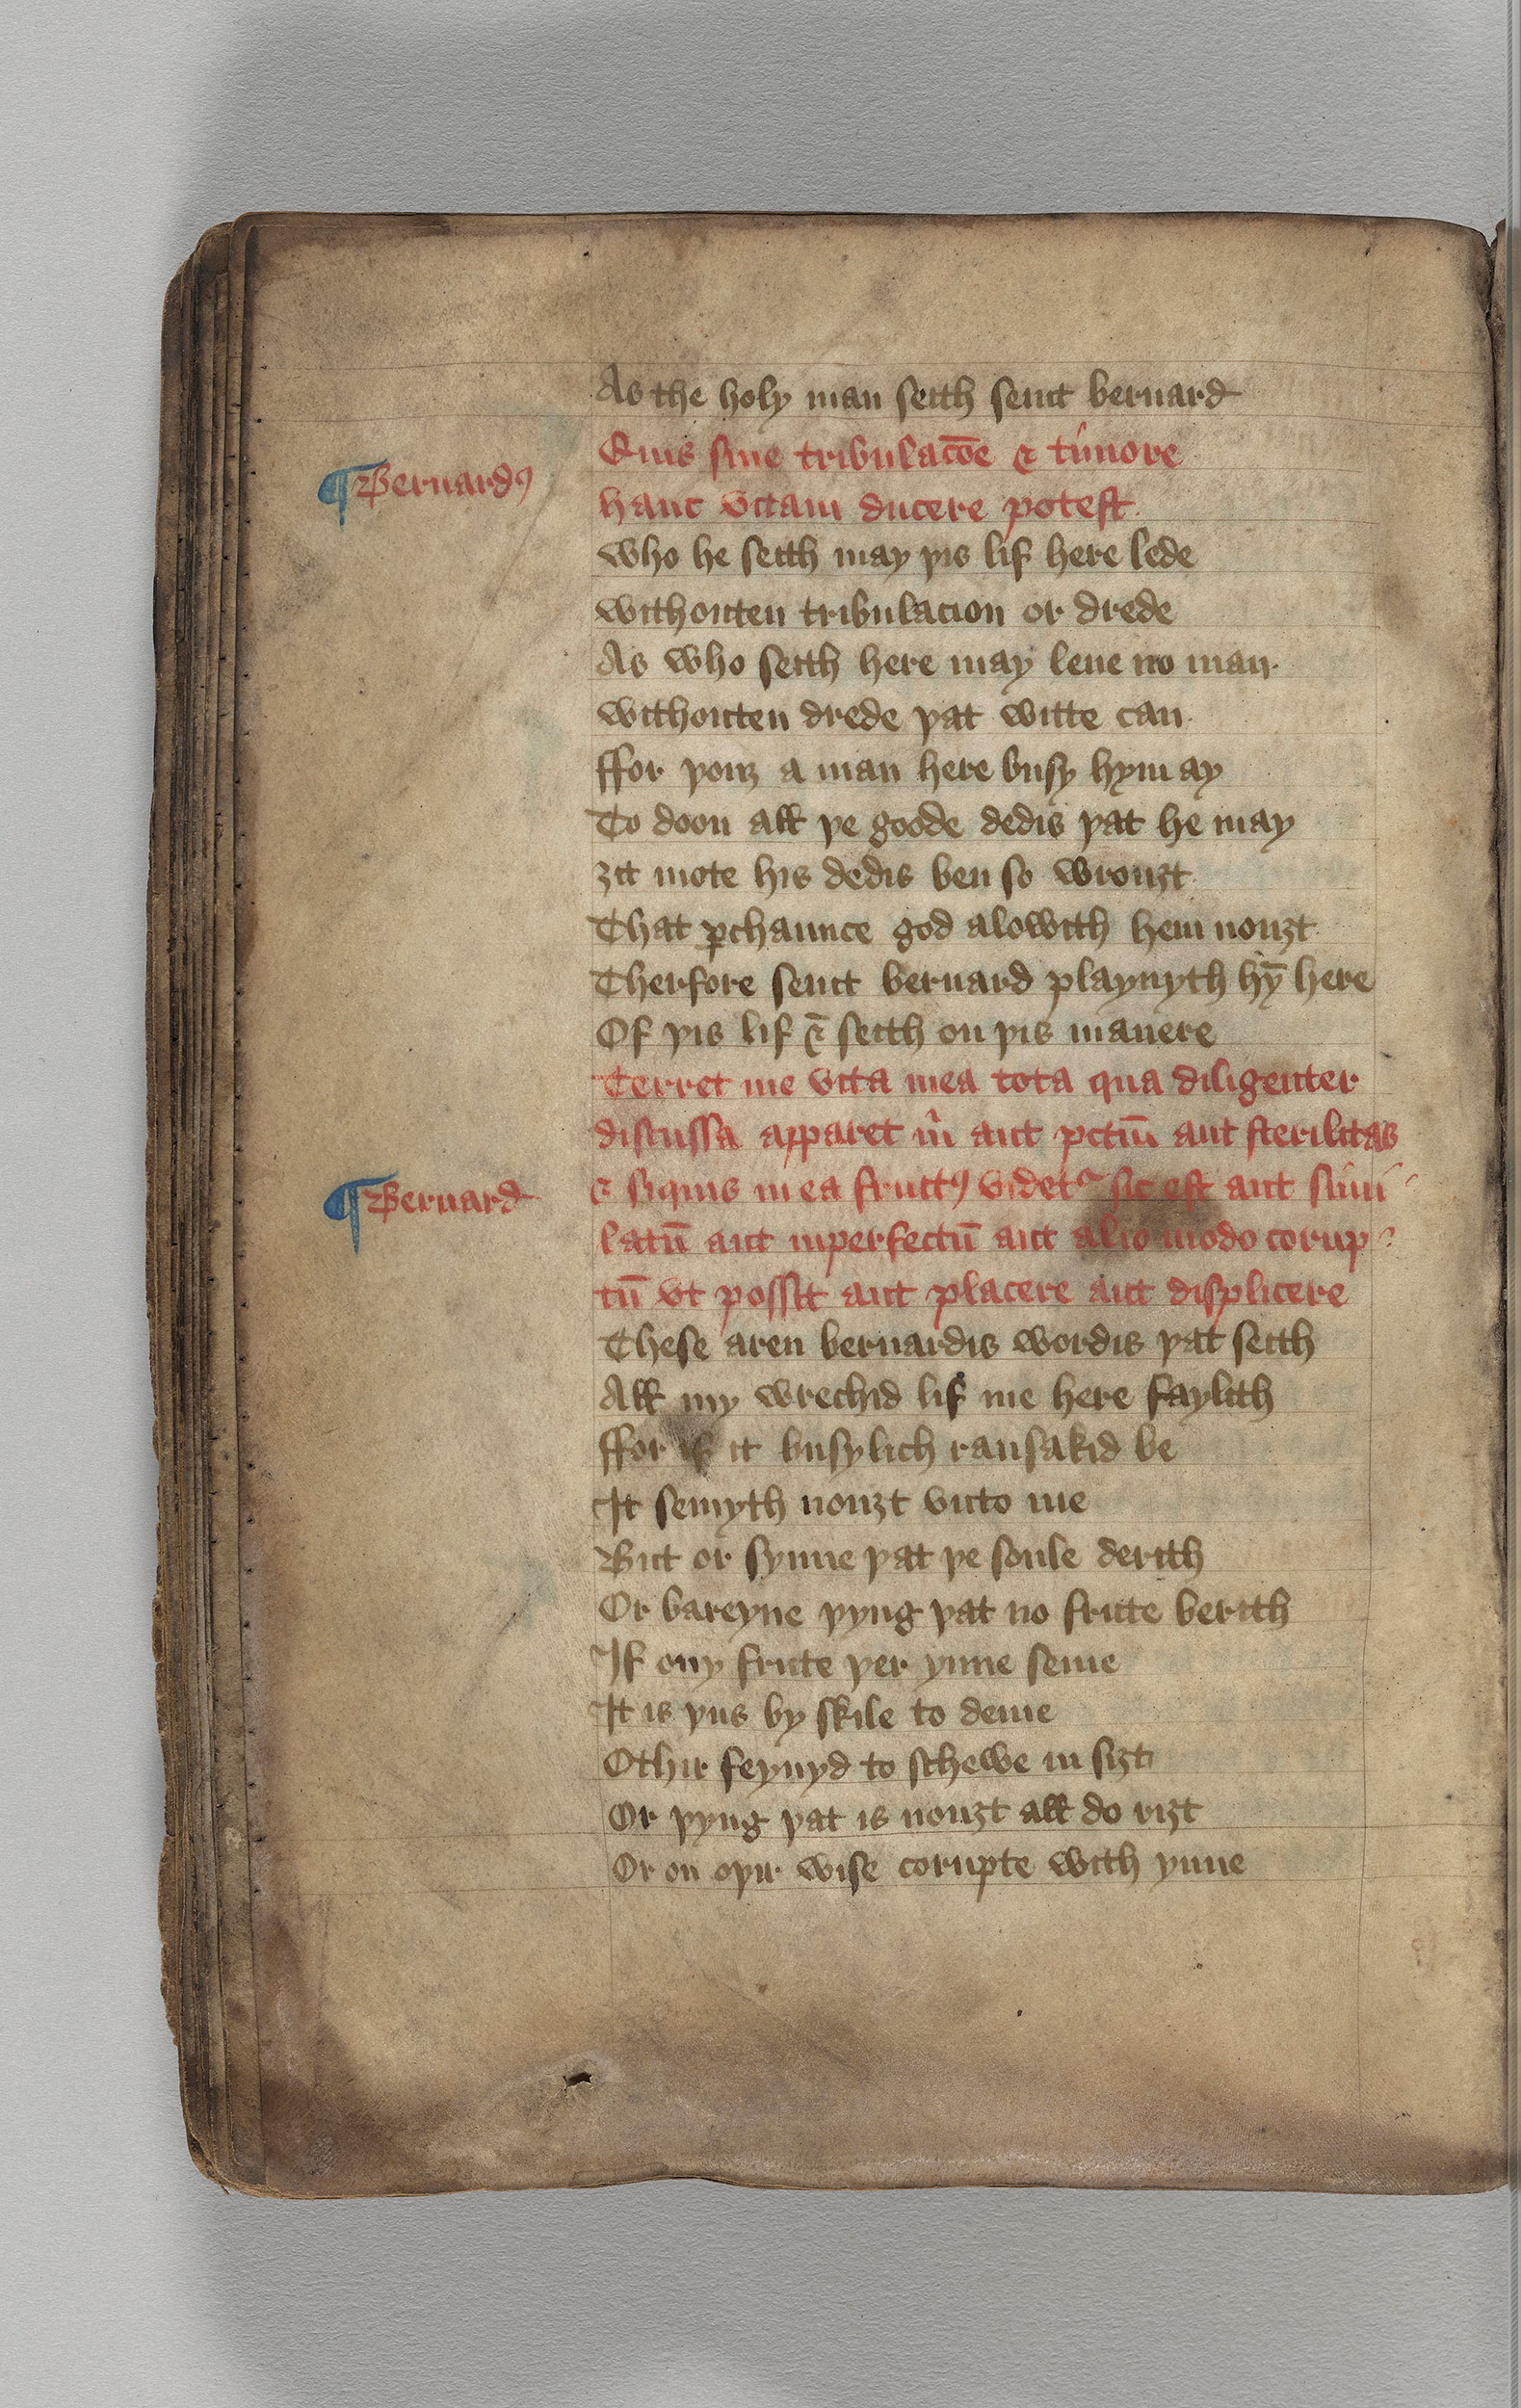 As the holy man seith seint bernard
Quis sine tribulacōe & timore
¶ Bernardꝯ
hanc vitam ducere potest
who he seith may þis lif here lede
withouten tribulacion or drede
As who seith here may leue no man
withouten drede þat witte can
ffor þouȝ a man here busy hym ay
To doon all þe goode dedis þat he may
ȝit mote his dedis ben so wrouȝt
That ꝑchaunce god alowith hem nouȝt
Therfore seint bernard playnyth hȳ here
Of þis lif & seith on þis manere
Terret me vita mea tota qua diligenter
discussa apparet m̄ aut pctm̄ aut sterilitas
& siquis in ea fructꝯ videtᷣ sic est aut simu
¶ Bernard
latū aut inperfectū aut alio modo corup
tū vt possit aut placere aut displicere
These aren bernardis wordis þat seith
All my wrechid lif me here faylith
ffor if it busylich ransakid be
It semyth nouȝt vnto me
But or synne þat þe soule derith
Or bareyne þyng þat no frute berith
If ony frute þer ynne seme
It is þus by skile to deme
Othir feynyd to schewe in siȝt
Or þyng þat is nouȝt all do riȝt
Or on oþir wise corupte with ynne